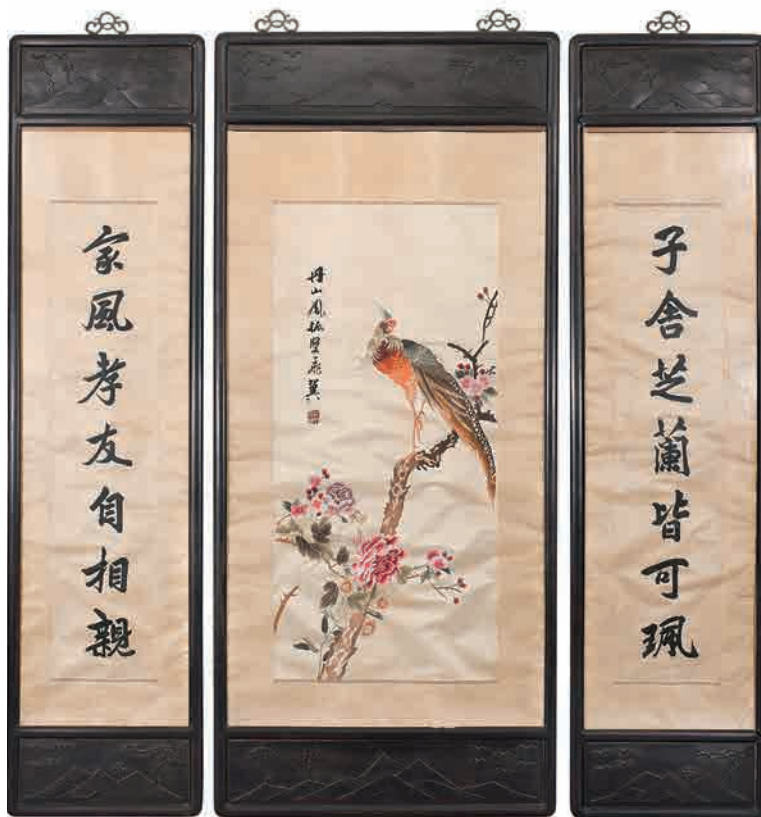 子舍芝蘭皆可珮
丹山鳳振雙飛翼
家風孝友自相親